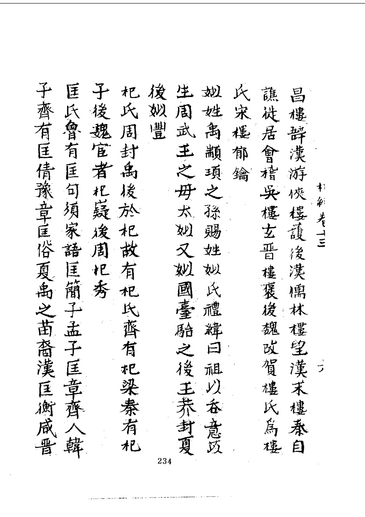 昌樓辭漢游俠樓護後漢儒林樓望漢末樓奉自
譙徙居會稽吳樓玄晉樓裒後魏改賀樓氏為樓
氏宋樓郁鑰
姒姓禹顓頊之孫賜姓姒氏禮緯曰祖以吞意苡
生周武王之母太姒又姒國臺駘之後王莽封夏
後姒豐
杞氏周封禹後於杞故有杞氏齊有杞梁秦有杞
子後魏官者杞嶷後周杞秀
匡氏魯有匡句須家語匡簡子孟子匡章齊人韓
子齊有匡倩豫章匡俗夏禹之苗裔漢匡衡咸晋
234